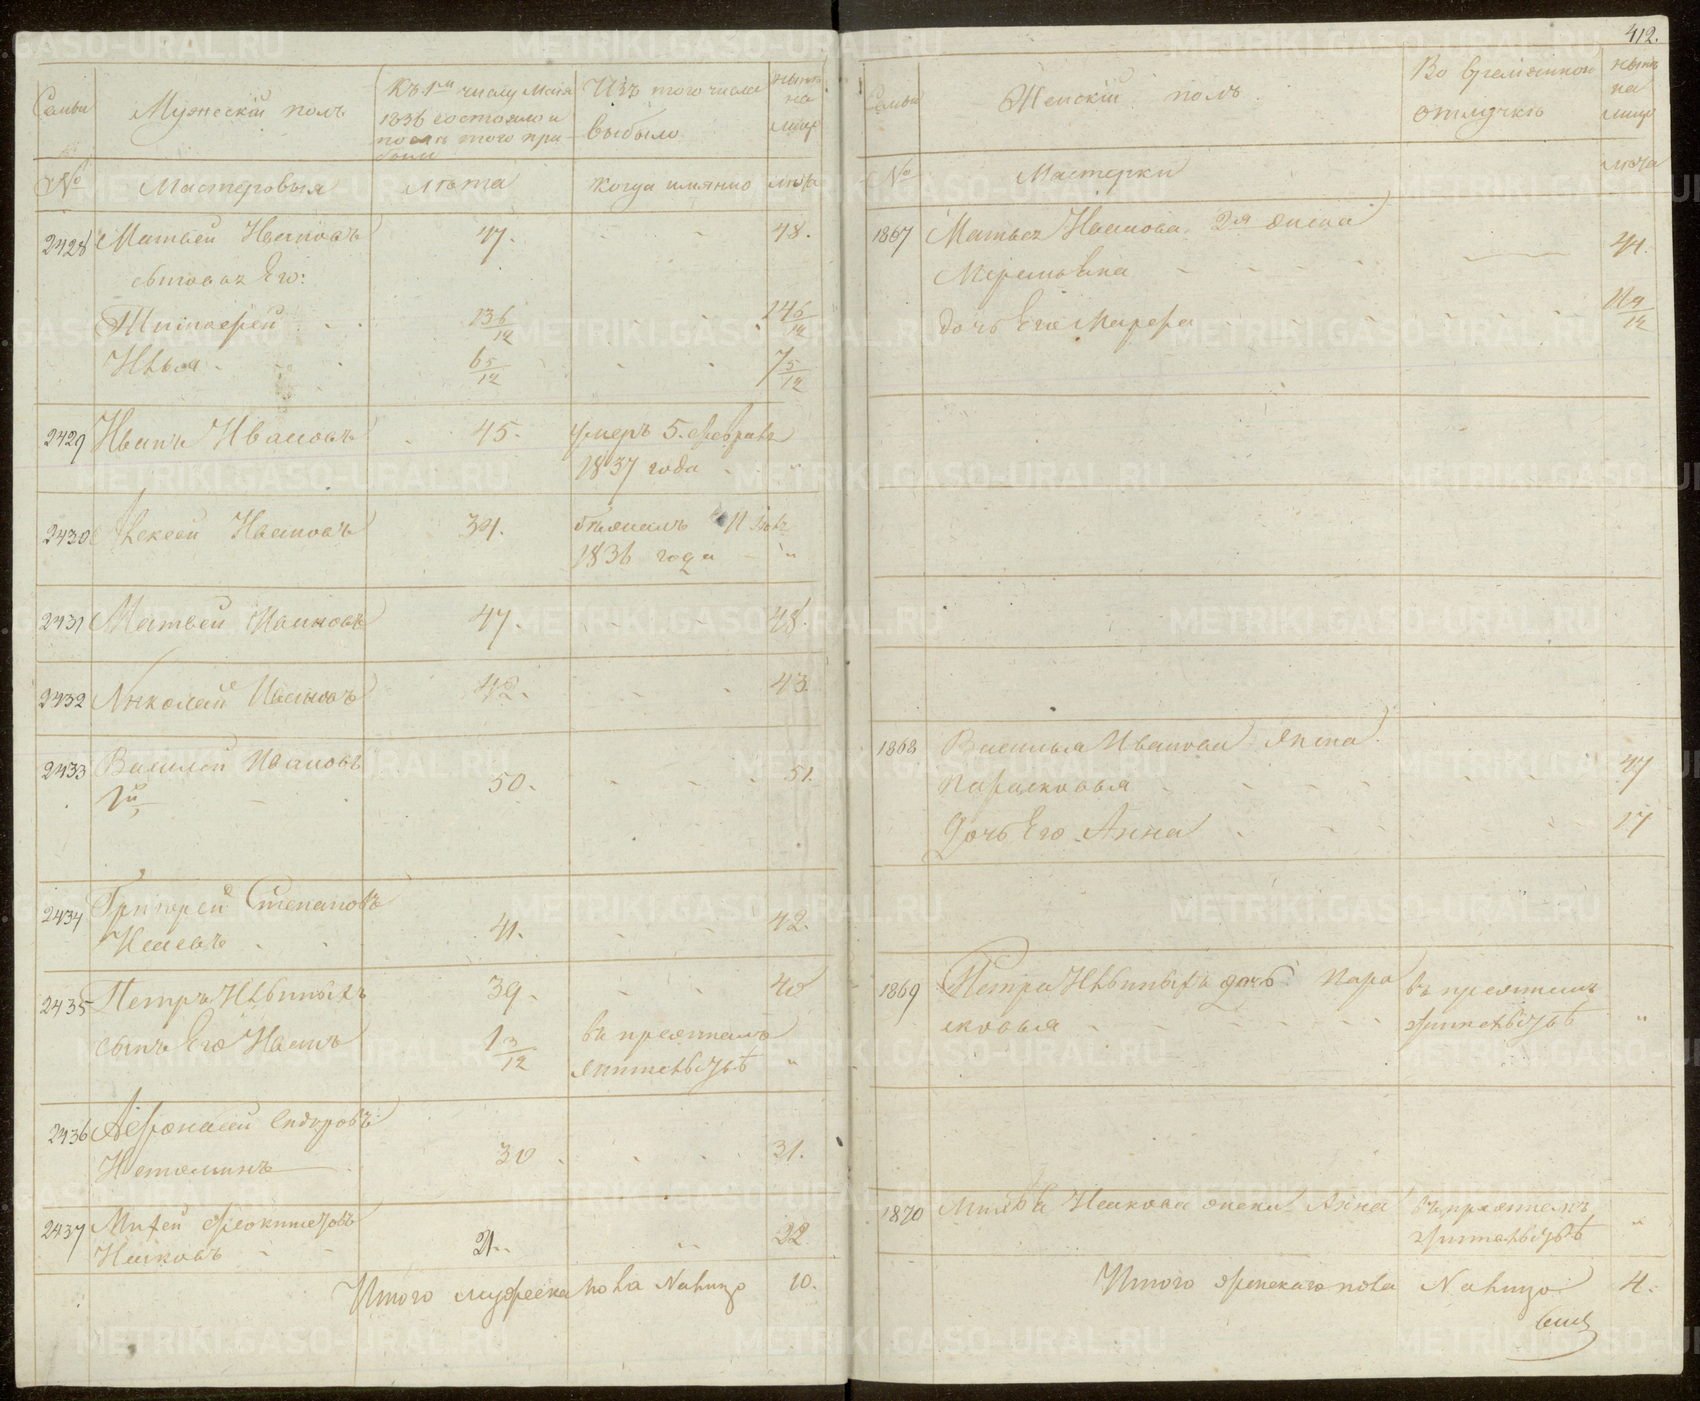 412.
Семьи
Мужескiй полъ
Къ 1му числу Маiя
1836 состояло и
после того при-
были
Изъ того числа
выбыло
нынѣ
на
лицо
№
Мастеровыя
лѣта
когда имянно
лѣта
2428 Матвей Ивановъ 47. - - 48.
сыновья Его:
Тимофей - - 13 6/12 - - 14 6/12
Илья - - 6 5/12 - - 7 5/12
2429 Иванъ Ивановъ - 45. умеръ 5. Февраля
1837 года - - "
2430 Алексей Ивановъ 39. бѣжалъ 11
1836 года - "
2431 Матвей Ивановъ 47. - - 48.
2432 Николай Ивановъ 42. - - 43.
2433 Василiй Ивановъ
1й - - 50. - - - 51.
2434 Григорей Степановъ
- - 41. - - 42.
2435 Петръ 39. - - 40
сынъ Его Иванъ 1 3/12 въ
жительствѣ "
2436 Афонасей Сидоровъ
30 - - - 31.
2437 Михей
21. - " 22.
Итого мужеска пола Налицо 10.
Семьи
Женскiй полъ
Во временной
отлучкѣ
нынѣ
на
лицо
№
Мастерки
лѣта
1867 Матвея Иванова 2я жена
- - - - 44.
дочь Его Марфа - - - - - 11 9/12
1868 Василья Иванова жена
Парасковья - - - - - - 47
Дочь Его Анна - - - - 17
1869 Петра дочь Пара
сковья - - - - - въ
жительствѣ "
1870 жена Анна въ
жительствѣ "
Итого женскаго пола Налицо 4.